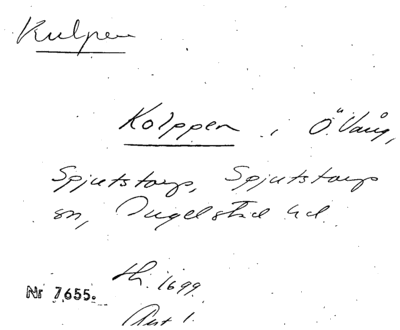 Kulpen
Kolppen, Ö. Vång,
Spjutstorp, Spjutstorps
sn, Ingelstad hd.
th. 1699.
Nr 7655.
Akt 1.